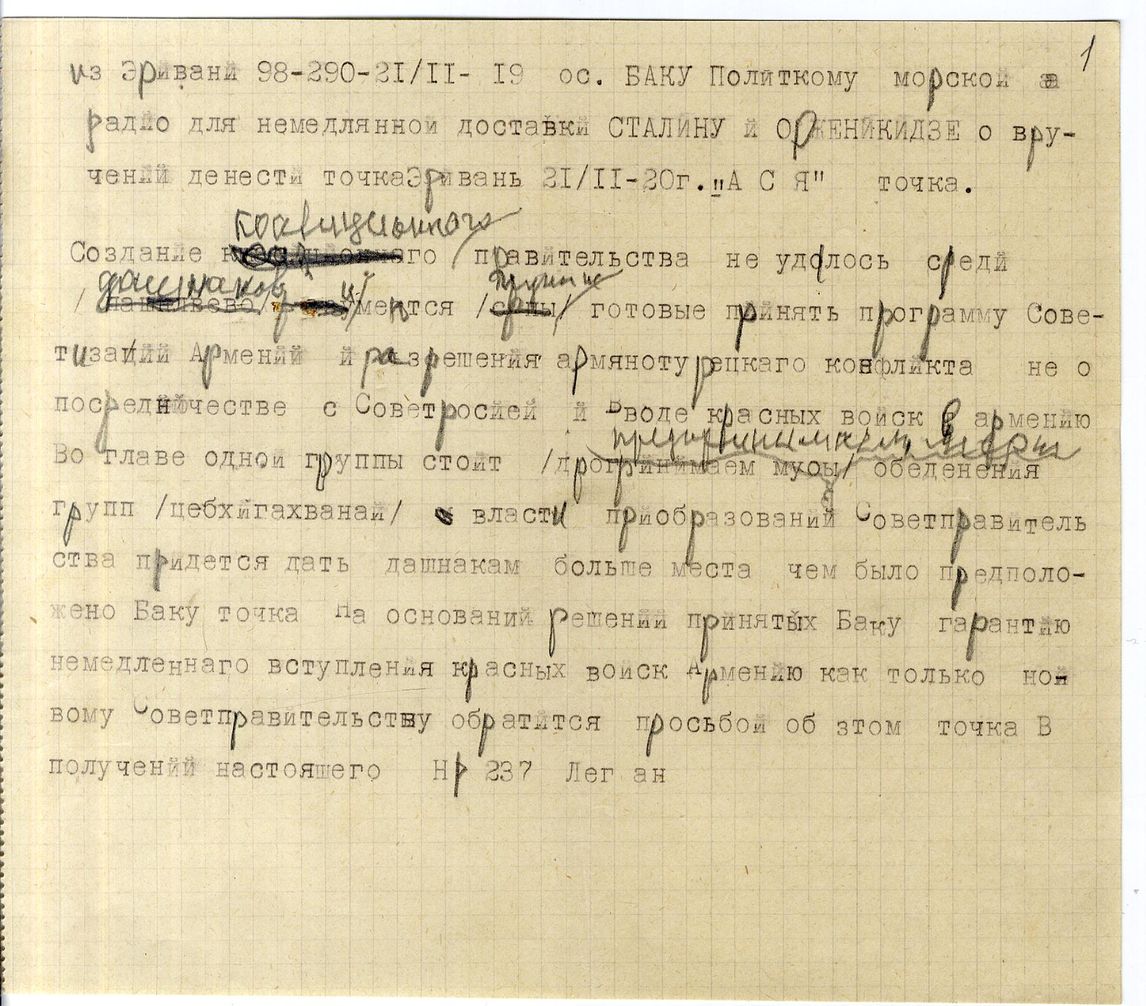 1
из Эривани 98-290-21/II- 19 ос. БАКУ Политкому морской
радио для немедлянной доставки СТАЛИНУ й ОРЖЕНИКИДЗЕ о вру-
чений денести точкаЭривань 21/II-20г. "А С Я" точка.
коалиционного
Создание правительства не удолось среди
дашнаков
/ имеются / / готовые принять программу Сове-
тизаций Армений й разрешения армянотурецкого конфликта не о
посредничестве с Советросией й Вводе красных войск в армению
предпринимаем меры
Во главе одной группы стоит /дрогринимаем муоы/ обеденения
групп /цебхйгахванай/ власти приобразований Советправитель
ства придется дать дашнакам больше места чем было предполо-
жено Баку точка На оснований решений принятых Баку гарантию
немедленнаго вступления красных войск Армению как только ной
вому Советправительству обратйтся просьбой об зтом точка В
получений настояшего Нр 237 Лег ан